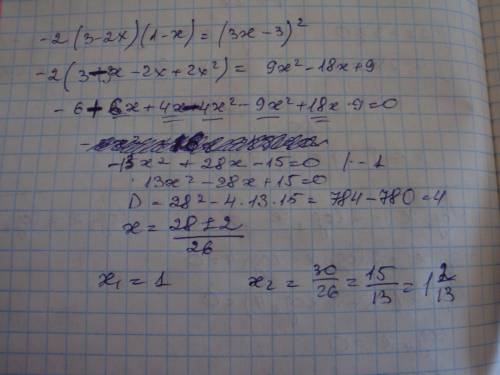 -2(3-2x)(1-x)=(3x-3)²
-2(3-3x-2x+2x²)= 9x²-18x+9
-6+6x+4x-4x²-9x²+18x-9=0
-13x²+28x-15=0 |·-1
13x²-28x+15=0
D=28²-4·13·15=784-780=4
x=\frac{28±2}{26}
x₁=1 x₂=\frac{30}{26}=\frac{15}{13}=1\frac{2}{13}